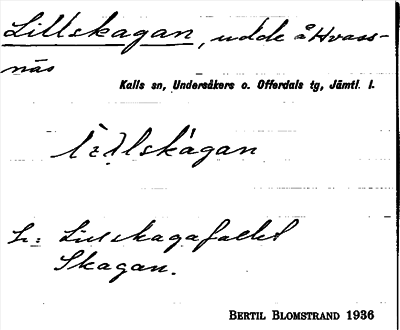 Lillskagan, udde å Hvass-
näs
Kalls sn, Undersåkers o. Offerdals tg, Jämtl. l.
skagan
L:
Skagan.
BERTIL BLOMSTRAND 1936